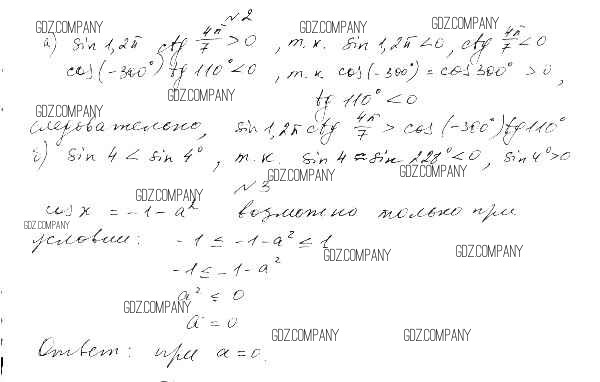 №2
GDZ.COMPANY GDZ.COMPANY GDZ.COMPANY
а) sin 1,2π ctg 4π/7 > 0, т.к. sin 1,2π < 0, ctg 4π/7 < 0
cos(-300°) tg 110° < 0, т.к. cos(-300°) = cos 300° > 0,
GDZ.COMPANY
tg 110° < 0
GDZ.COMPANY
следовательно, sin 1,2π ctg 4π/7 > cos(-300°) tg 110°
б) sin 4 < sin 4°, т.к. sin 4 ≈ sin 229° < 0, sin 4° > 0
GDZ.COMPANY GDZ.COMPANY
№3
GDZ.COMPANY
cos x = -1 - a² возможно только при
GDZ.COMPANY
условии: -1 ≤ -1 - a² ≤ 1
GDZ.COMPANY GDZ.COMPANY
-1 ≤ -1 - a²
a² ≤ 0
GDZ.COMPANY
a = 0
GDZ.COMPANY GDZ.COMPANY
Ответ: при a = 0.